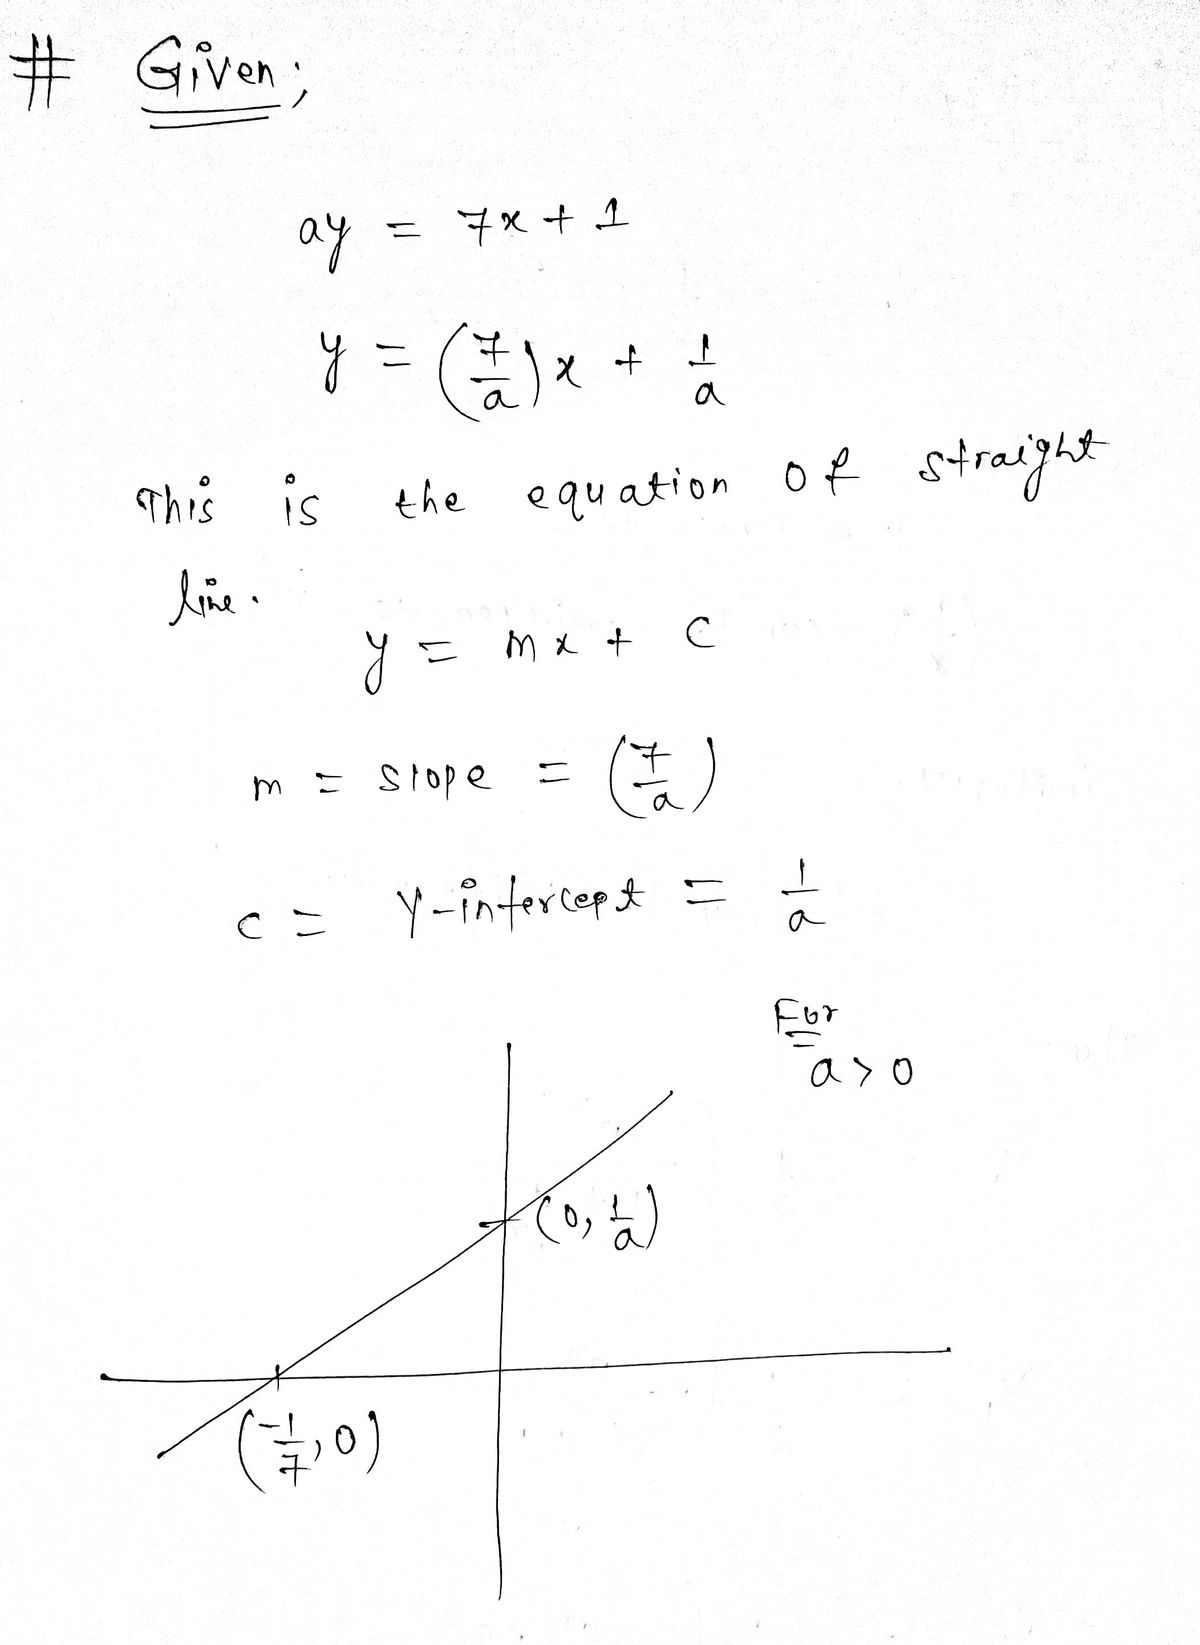 # Given;
ay = 7x + 1
y = (7/a)x + 1/a
This is the equation of straight
line.
y = mx + c
m = slope = (7/a)
c = Y-intercept = 1/a
For
a > 0
(0, 1/a)
(-1/7, 0)